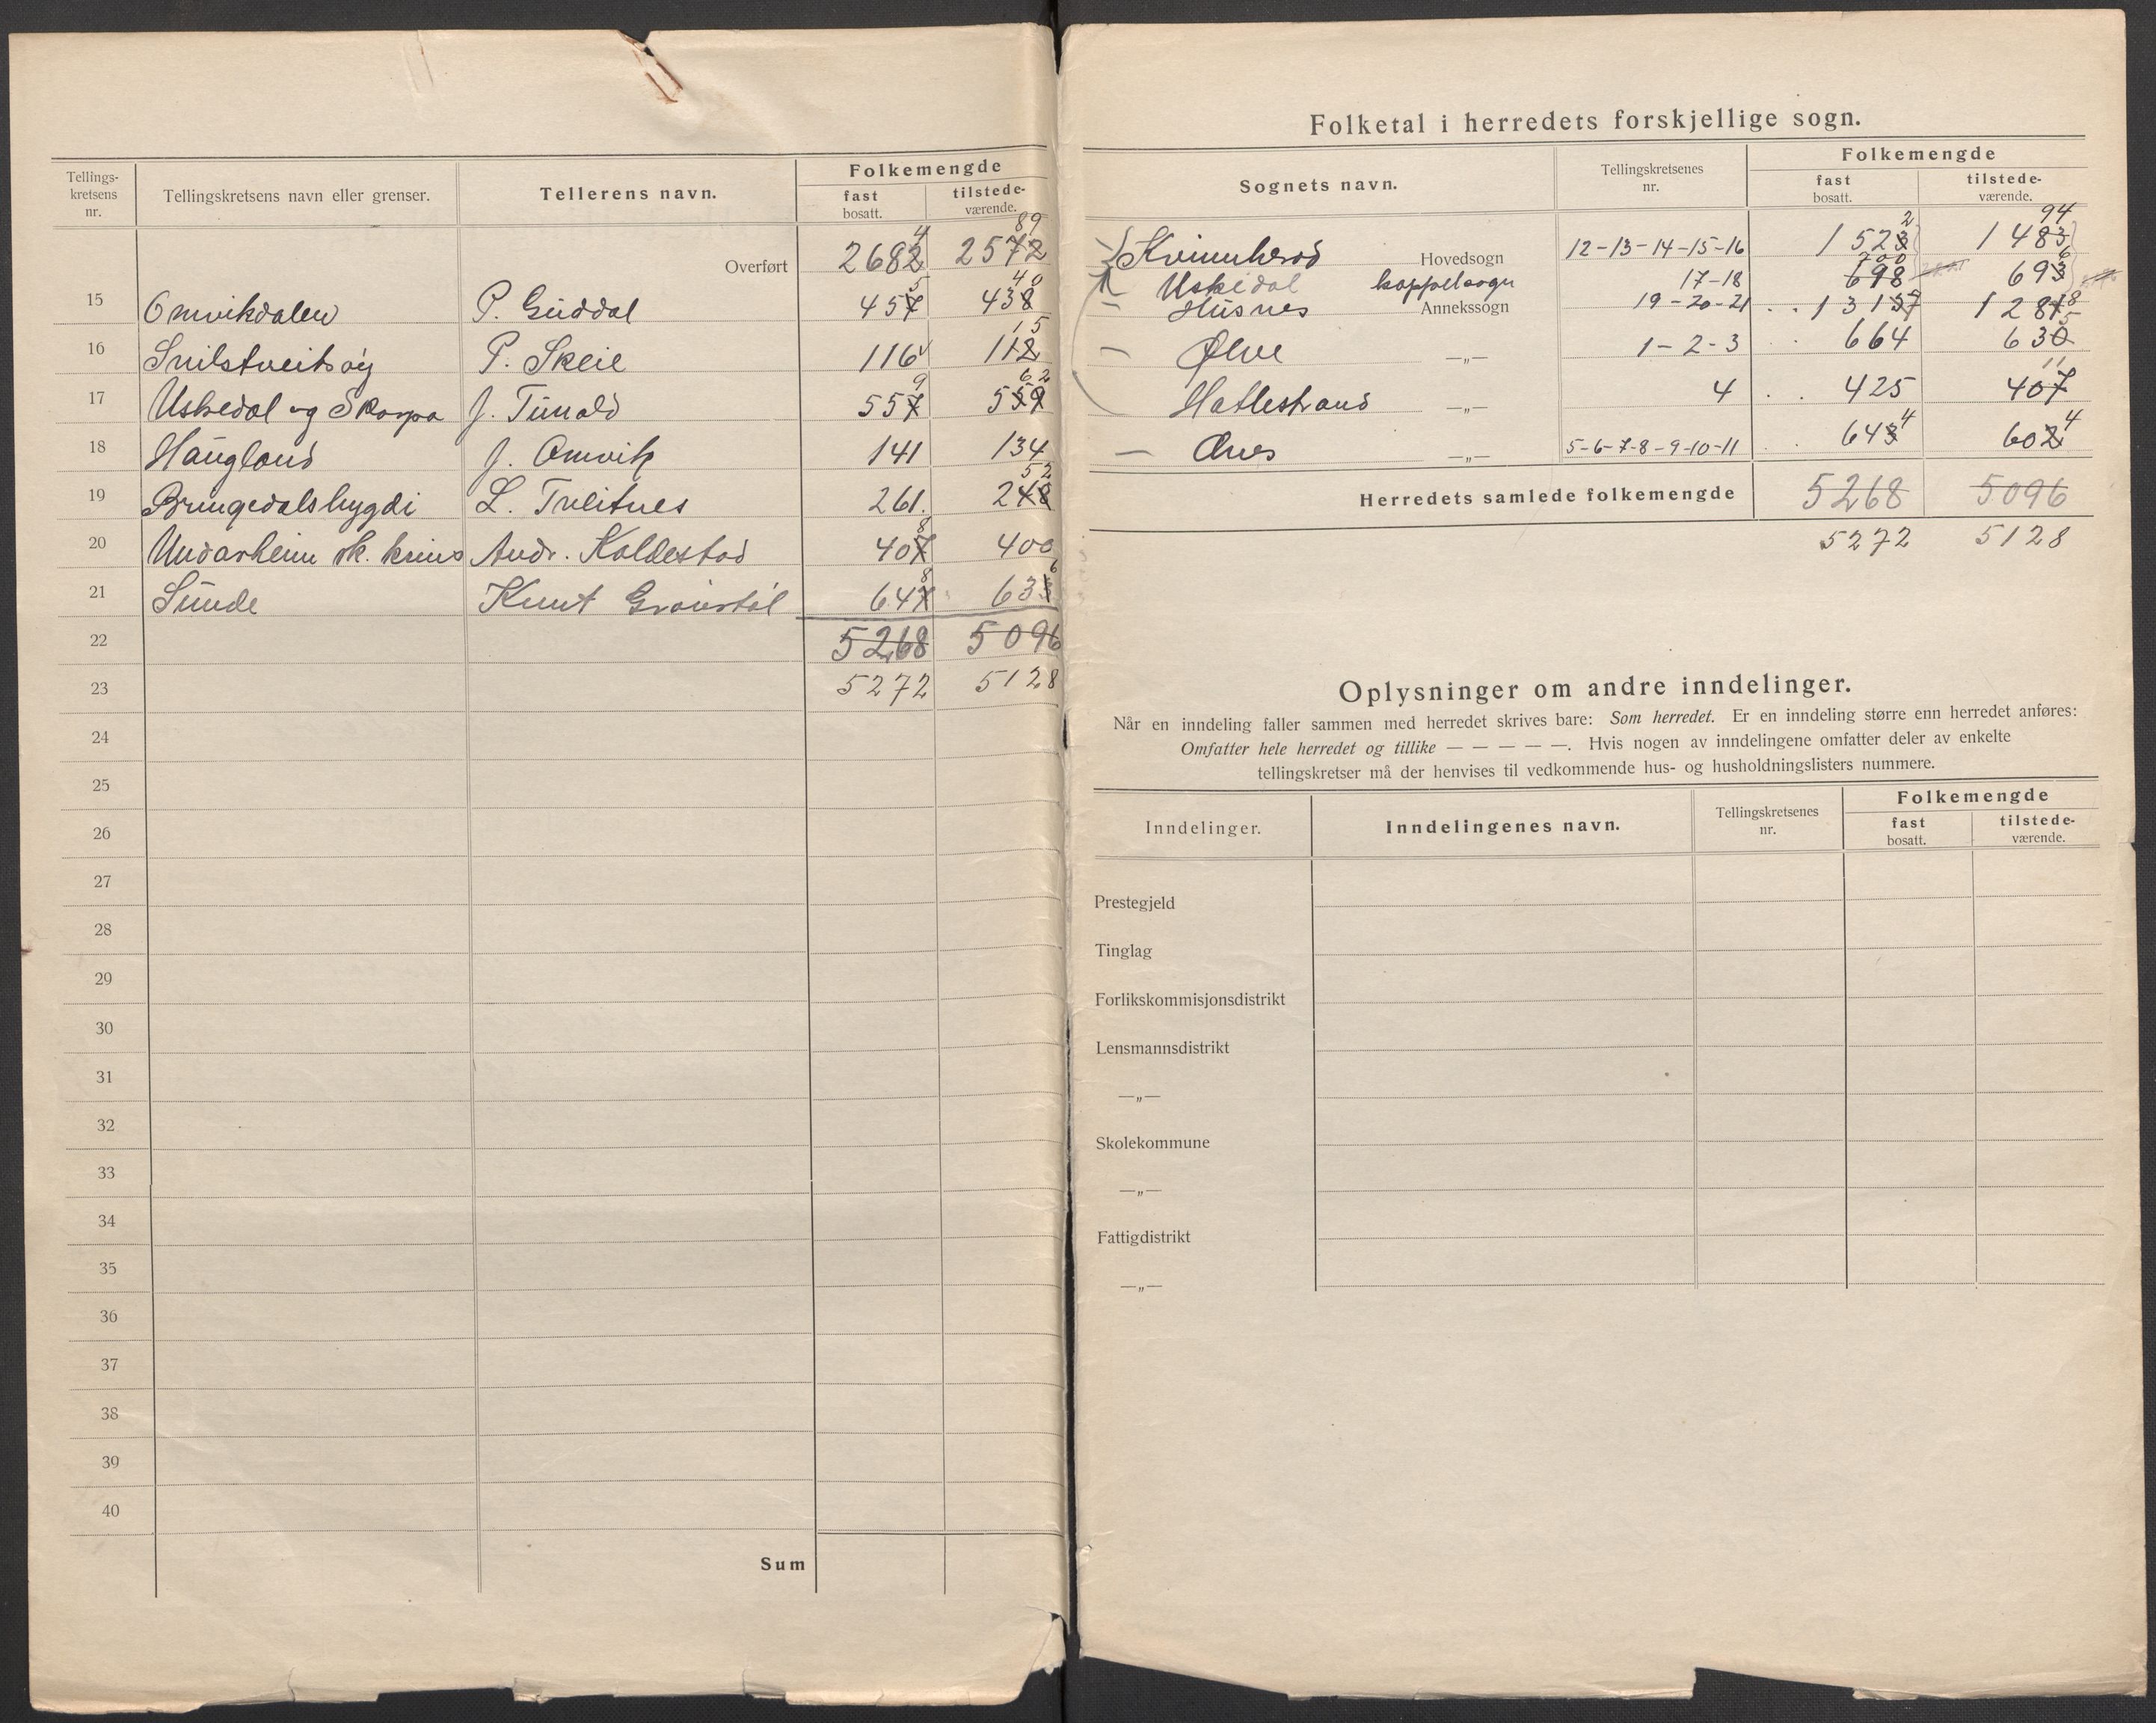 Tellings-
kretsens
nr.
Tellingskretsens navn eller grenser.
Tellerens navn.
Folkemengde
fast
bosatt.
tilstede-
værende.
4 89
Overført 2682 2572
5 40
15 Omvikdalen P. Guddal 457 438
15
16 Snilstveitsøy P. Skeie 116 112
9 62
17 Uskedal og Skorpa J. Tunald 557 559
18 Haugland J. Omvik 141 134
52
19 Bringedalsbygdi L. Tveitnes 261. 248
8
20 Undarheim sk. krins Andr. Koldestad 407 400
8 6
21 Sunde Knut Grønstøl 647 633
22 5268 5096
23 5272 5128
24
25
26
27
28
29
30
31
32
33
34
35
36
37
38
39
40
Sum
Folketal i herredets forskjellige sogn.
Sognets navn.
Tellingskretsenes
nr.
Folkemengde
fast
bosatt.
tilstede-
værende.
2 94
Kvinnherad Hovedsogn 12-13-14-15-16 1523 1483
700 6
Uskedal kappelsogn 17-18 698 693
Husnes Annekssogn 19-20-21 1315 7 1281 8
5
Ølve —„— 1-2-3 664 630
11
Hatlestrand —„— 4 425 407
4 4
Ænes —„— 5-6-7-8-9-10-11 643 602
Herredets samlede folkemengde 5268 5096
5272 5128
Oplysninger om andre inndelinger.
Når en inndeling faller sammen med herredet skrives bare: Som herredet. Er en inndeling større enn herredet anføres:
Omfatter hele herredet og tillike — — — — —. Hvis nogen av inndelingene omfatter deler av enkelte
tellingskretser må der henvises til vedkommende hus- og husholdningslisters nummere.
Inndelinger.
Inndelingenes navn.
Tellingskretsenes
nr.
Folkemengde
fast
bosatt.
tilstede-
værende.
Prestegjeld
Tinglag
Forlikskommisjonsdistrikt
Lensmannsdistrikt
—„—
Skolekommune
—„—
Fattigdistrikt
—„—